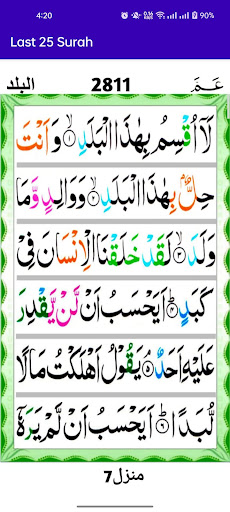 4:20 90%
Last 25 Surah
البلد 2811 عَمَّ
لَاۤ اُقْسِمُ بِهٰذَا الْبَلَدِ ۙ۝۱ وَ اَنْتَ
حِلٌّۢ بِهٰذَا الْبَلَدِ ۙ۝۲ وَ وَالِدٍ وَّ مَا
وَلَدَ ۙ۝۳ لَقَدْ خَلَقْنَا الْاِنْسَانَ فِیْ
كَبَدٍ ؕ۝۴ اَیَحْسَبُ اَنْ لَّنْ یَّقْدِرَ
عَلَیْهِ اَحَدٌ ۘ۝۵ یَقُوْلُ اَهْلَكْتُ مَالًا
لُّبَدًا ؕ۝۶ اَیَحْسَبُ اَنْ لَّمْ یَرَهٗۤ
منزل7